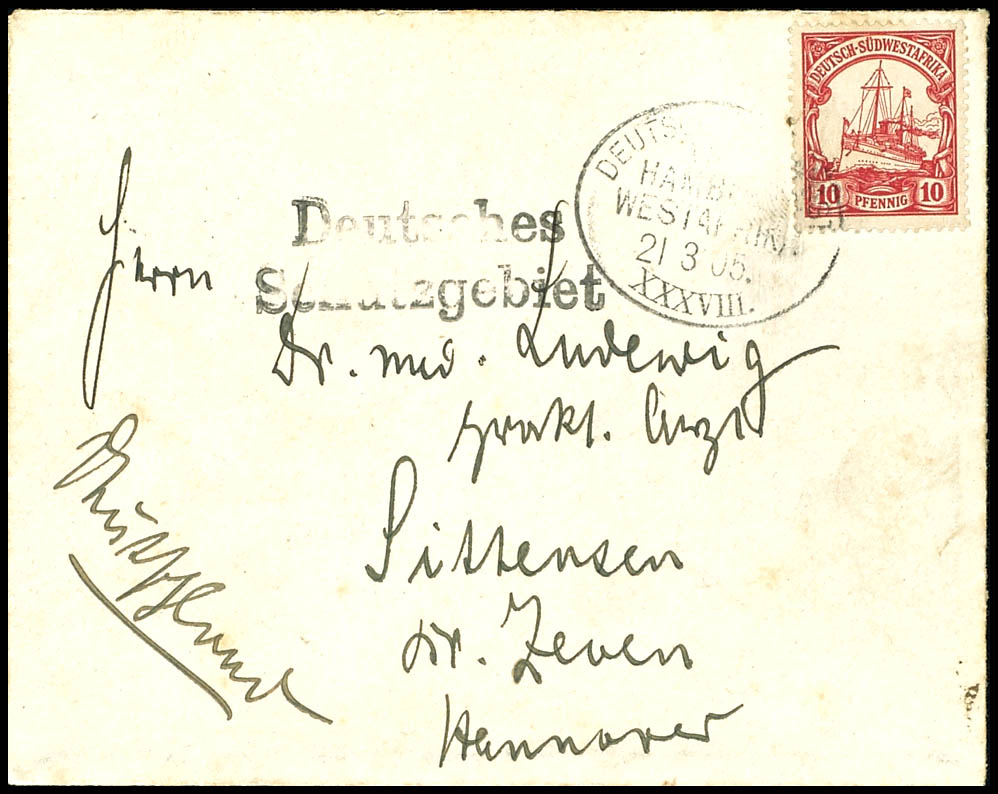 DEUTSCH-SÜDWESTAFRIKA
10 PFENNIG 10
WESTAFRIKA
21 3 05.
XXXVIII.
Deutsches
Schutzgebiet
Herrn
Dr. med. Ludewig
prakt. Arzt
Sittensen
Kr. Zeven
Hannover
Deutschland